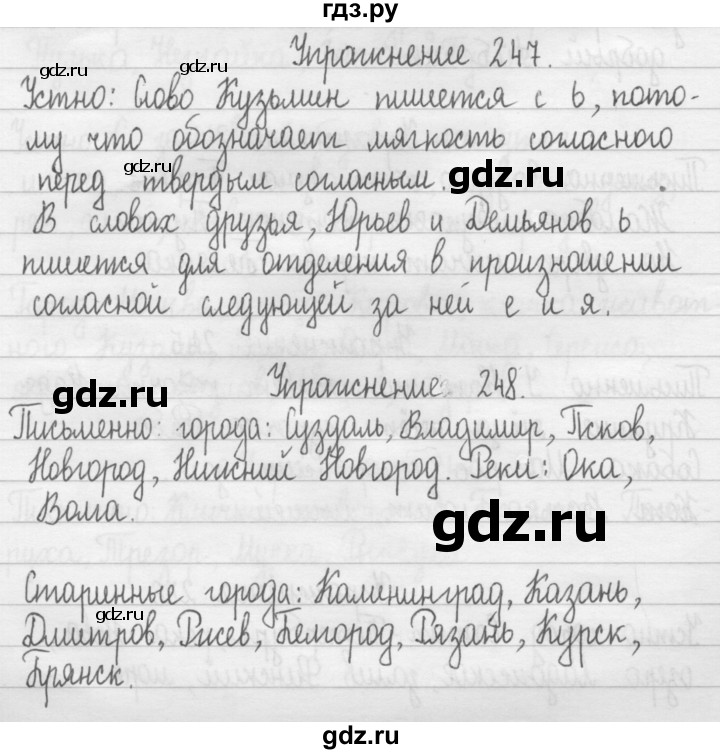 гдз.ру
Упражнение 247.
gdz.ru
gdz.ru
Устно: Слово Кузьмин пишется с ь, пото-
му что обозначает мягкость согласного
gdz.ru
gdz.ru
перед твердым согласным.
gdz.ru
В словах друзья, Юрьев и Демьянов ь
gdz.ru
gdz.ru
пишется для отделения в произношении
согласной следующей за ней е и я.
Упражнение 248.
gdz.ru
gdz.ru
Письменно: города: Суздаль, Владимир, Псков,
Новгород, Нижний Новгород. Реки: Ока,
Волга.
gdz.ru
Старинные города: Калининград, Казань,
gdz.ru
gdz.ru
Дмитров, Ржев, Белгород, Рязань, Курск,
Брянск.
gdz.ru
gdz.ru